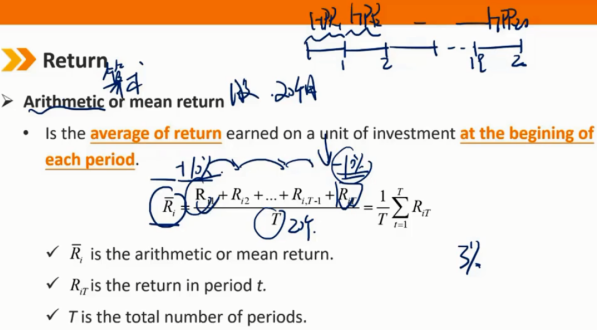 HPR₁ HPR₂ HPR₂₀
1 2 ... 19 2
Return
Arithmetic or mean return 20年
• Is the average of return earned on a unit of investment at the begining of
each period.
+10% -10%
R̄ᵢ = (Rᵢ₁ + Rᵢ₂ + ... + Rᵢ,T-1 + Rᵢ) / T = 1/T ∑ₜ₌₁ᵀ RᵢT
20年
✓ R̄ᵢ is the arithmetic or mean return.
3%
✓ RᵢT is the return in period t.
✓ T is the total number of periods.